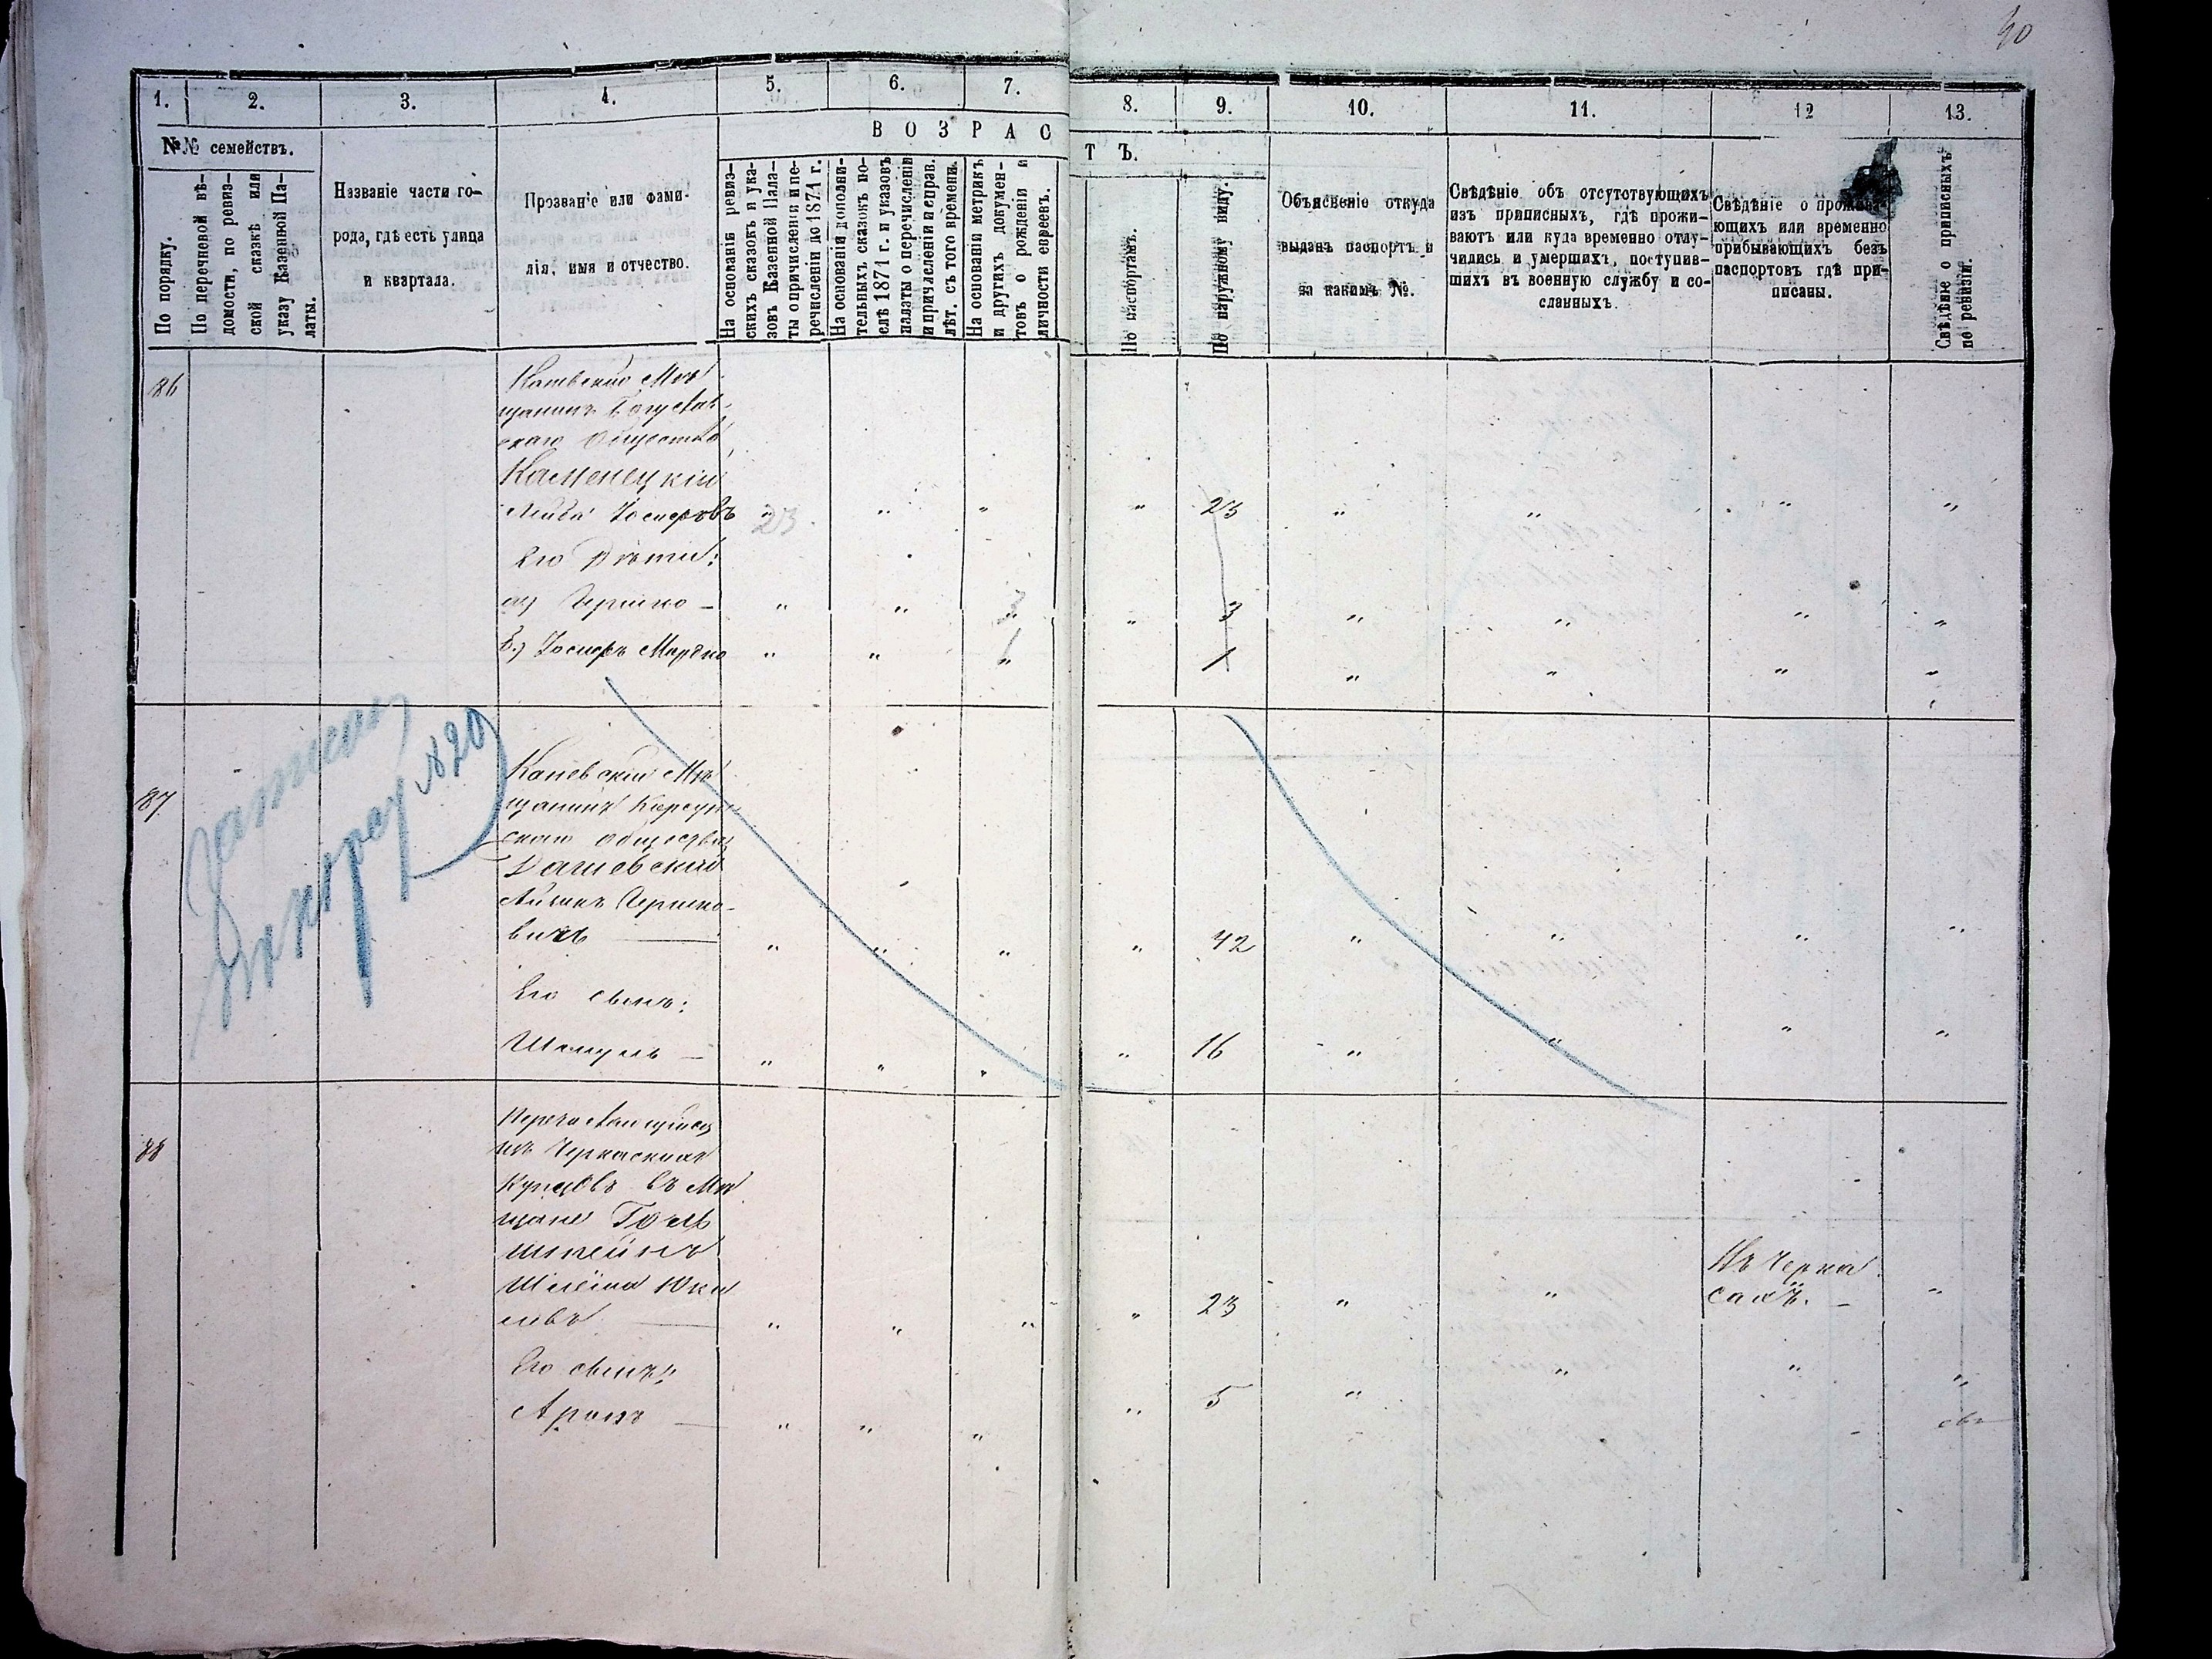 40
1. 2. 3. 4. 5. 6. 7. 8. 9. 10. 11. 12 13.
№№ семействъ.
По порядку.
По перечневой вѣ-
домости, по ревиз-
ской сказкѣ или
указу Казенной Па-
латы.
Названіе части го-
рода, гдѣ есть улица
и квартала.
Прозваніе или фами-
лія, имя и отчество.
ВОЗРАСТЪ.
На основаніи ревиз-
скихъ сказокъ и ука-
зовъ Казенной Пала-
ты о причисленіи и пе-
речисленіи до 1874 г.
На основаніи дополни-
тельныхъ сказокъ по-
слѣ 1874 г. и указовъ
палаты о перечисленіи
и причисленіи и справ.
лѣт. съ того времени.
На основаніи метрикъ
и другихъ докумен-
товъ о рожденіи и
личности евреевъ.
По паспортамъ.
По наружному виду.
Объясненіе откуда
выданъ паспортъ и
за какимъ №.
Свѣдѣніе объ отсутствующихъ
изъ приписныхъ, гдѣ прожи-
ваютъ или куда временно отлу-
чились и умершихъ, поступив-
шихъ въ военную службу и со-
сланныхъ.
Свѣдѣніе о прожива-
ющихъ или временно
прибывающихъ безъ
паспортовъ гдѣ при-
писаны.
Свѣдѣніе о приписныхъ
по ревизіи.
86
Каневскій Мѣ
щанинъ Богуслав-
скаго Общества
Каменецкій
Лейба Іосифовъ " 23 " " " 23 " " " "
Его Дѣти:
а) Гершко — " " 3 " 3 " " " "
б) Іосифъ Мордко " " 1 1 " " " "
87
№ 20
Каневскій Мѣ
щанинъ Корсун
скаго общества
Дашевскій
Айзикъ Гершко-
вичъ — " " " " 42 " " " "
Его сынъ:
Шмуль — " " " " 16 " " " "
88
Перечисляющійся
изъ Черкаскихъ
Купцовъ въ Мѣ
щане Голь
штейнъ
Шлёма Юки
ловъ — " " " " 23 " " Въ Черка
сахъ. — "
Его сынъ:
Аронъ — " " " " 5 " " " "